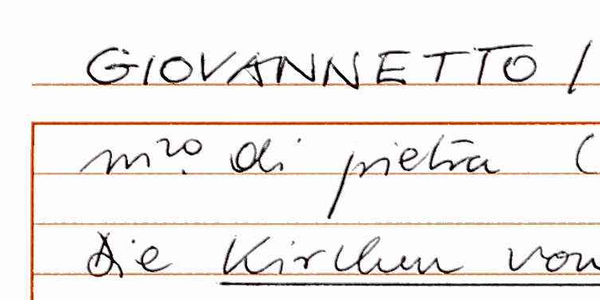 GIOVANNETTO /
mro di pietra (
die Kirchen von